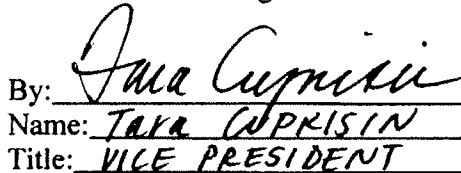 By: Tara Cuprisin
Name: Tara CUPRISIN
Title: VICE PRESIDENT